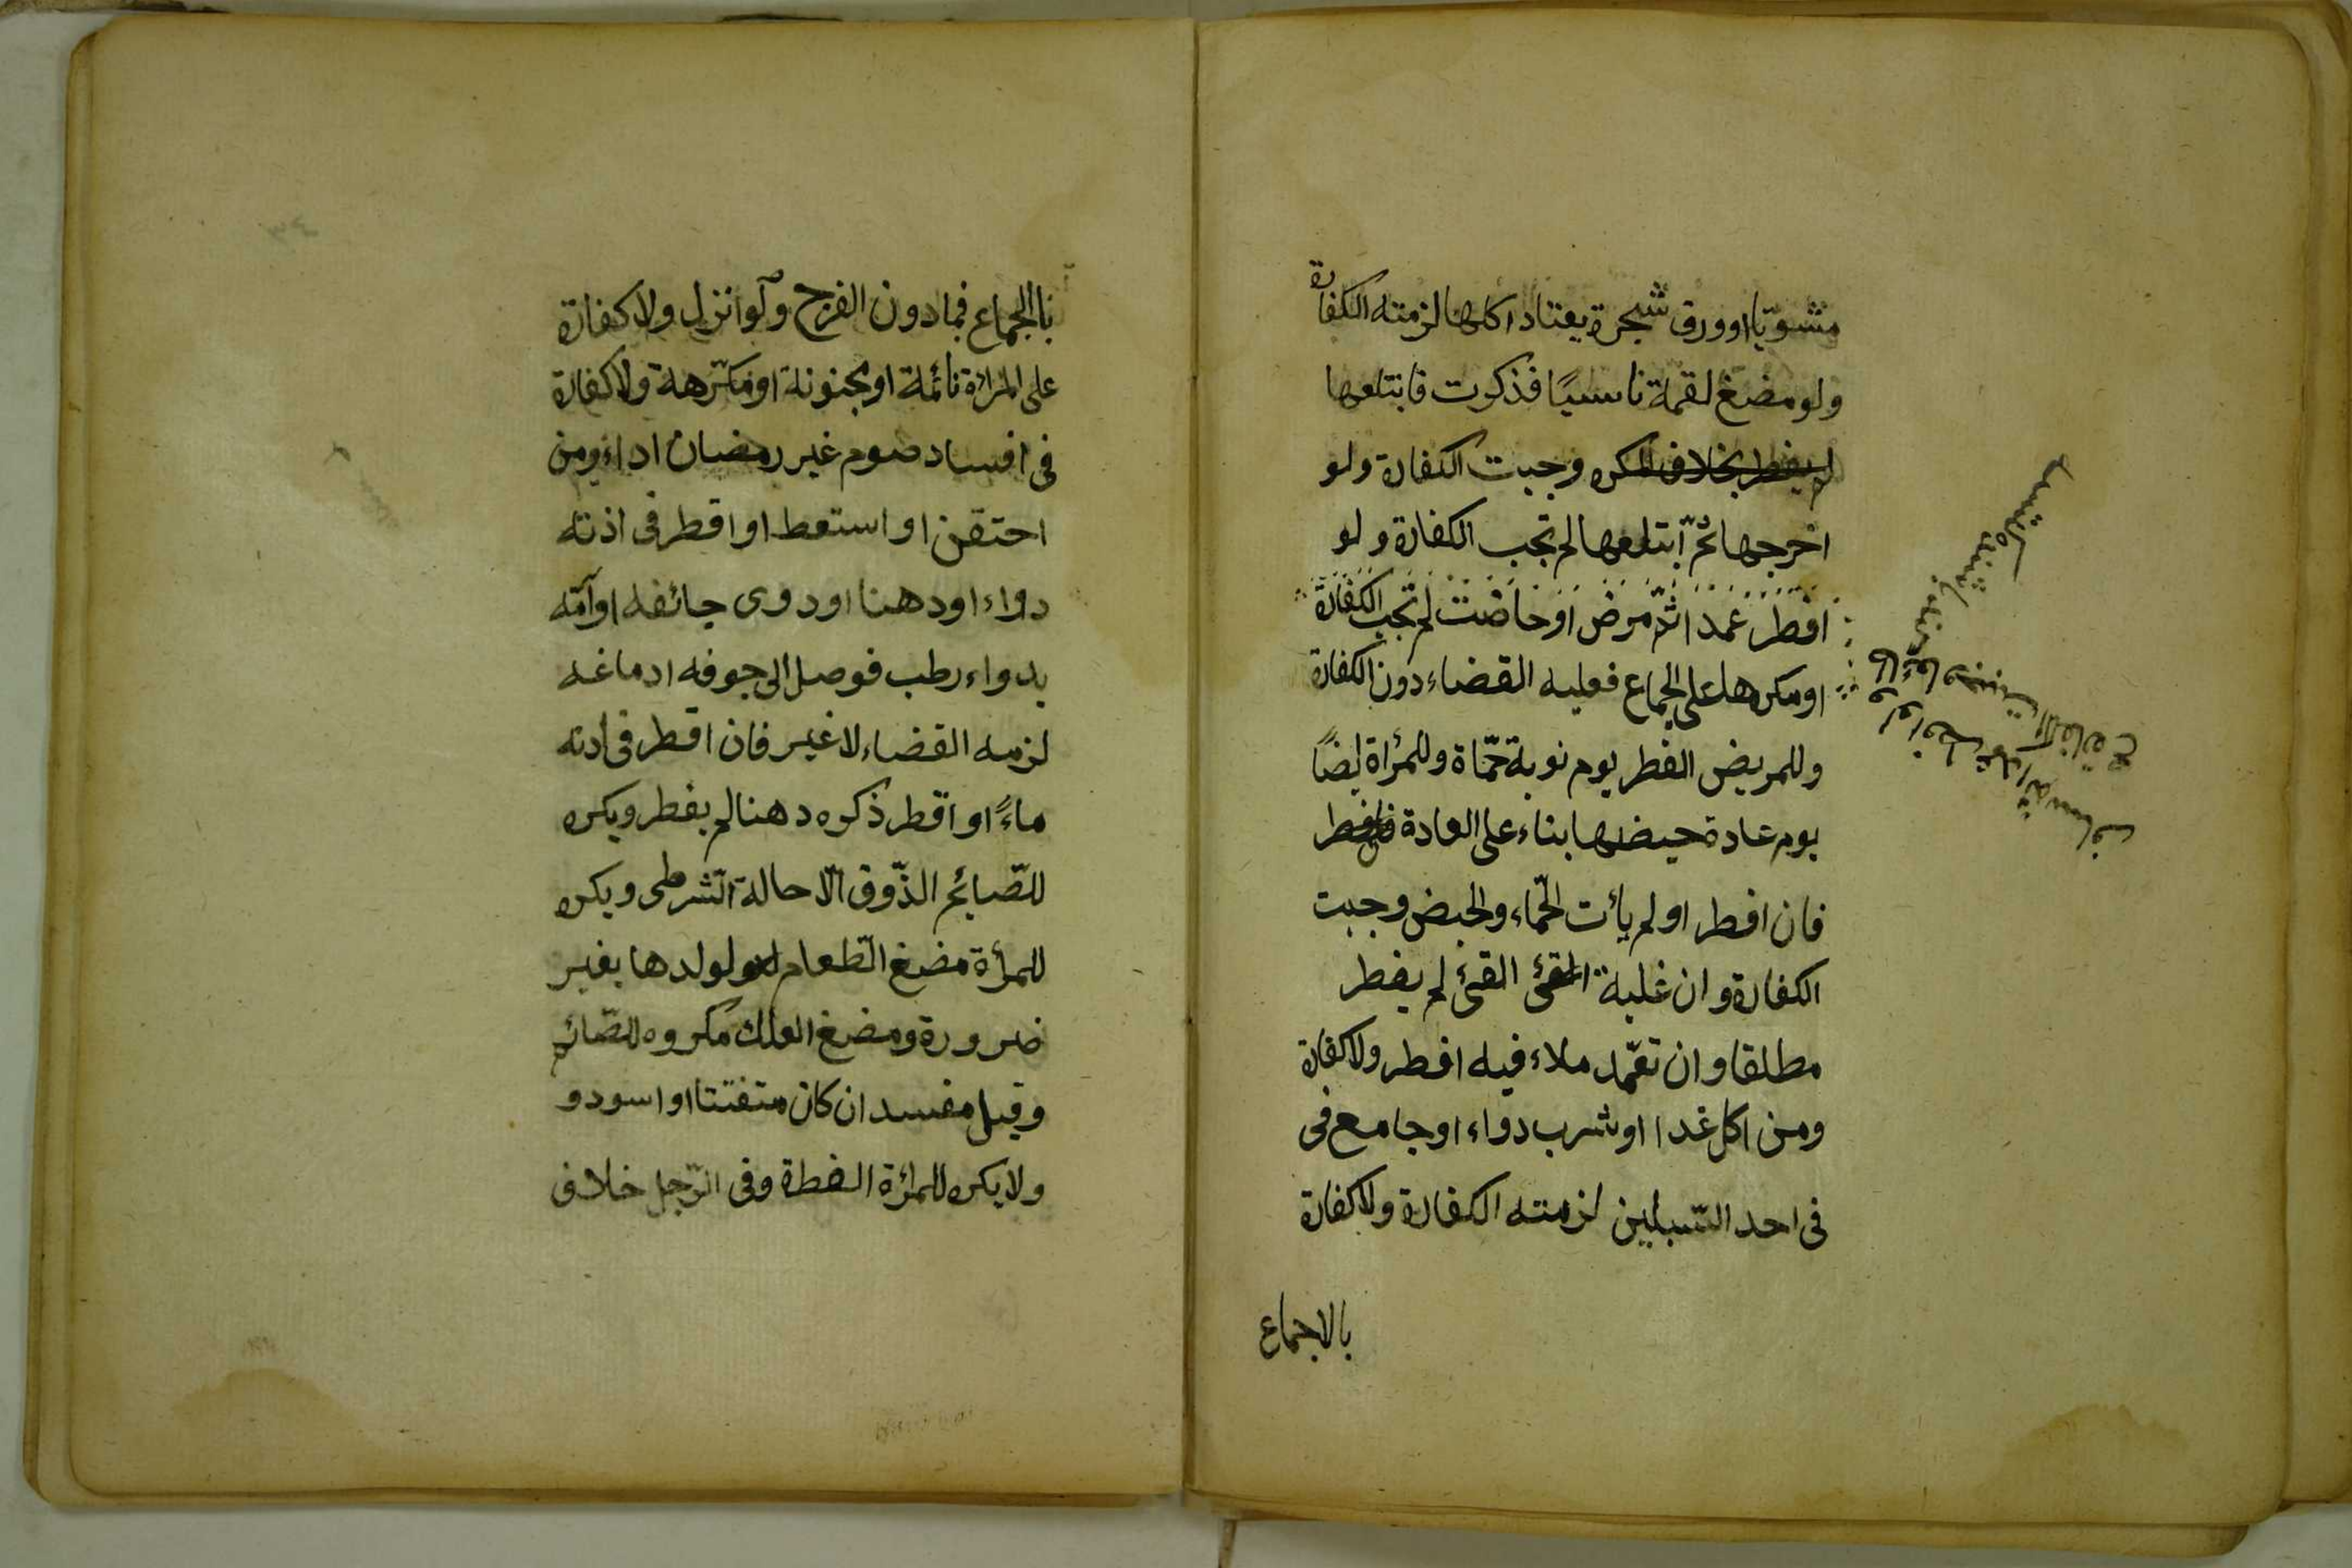 مشويّا او ورق شجرة يعتاد اكلها لزمته الكفارة
ولو مضغ لقمة ناسيًا فذكرت فابتلعها
لم يفطر بخلاف المكره وجبت الكفارة ولو
اخرجها ثمّ ابتلعها لم تجب الكفارة ولو
افطر عمدا ثمّ مرض او حاضت لم تجب الكفارة
او مكرها على الجماع فعليه القضاء دون الكفارة
وللمريض الفطر يوم نوبة حمّاة وللمرأة ايضًا
يوم عادة حيضها بناء على العادة
فان افطر او لم يأت الحمّاء والحيض وجبت
الكفارة وان غلبة القئ لم يفطر
مطلقا وان تعمّد ملاء فيه افطر ولا كفارة
ومن اكل غدا او شرب دواء او جامع فى
فى احد السّبيلين لزمته الكفارة ولا كفارة
بالاجماع
ولو افطر عمدا ثم سافر
وجبت الكفارة
باالجماع فمادون الفرج ولو انزل ولا كفارة
على المرأة نائمة او مجنونة او مكرهة ولا كفارة
فى افساد صوم غير رمضان اداء ومن
احتقن او استعط او اقطر فى اذنه
دواء او دهنا او دوى جائفه او آمّه
بدواء رطب فوصل الى جوفه ادماغه
لزمه القضاء لا غير فان اقطر فى اذنه
ماءً او اقطر ذكره دهنا لم يفطر ويكره
للصّايم الذّوق الّا حالة الشرطى ويكره
للمرأة مضغ الطّعام لولدها بغير
ضرورة ومضغ العلك مكروه للصّائم
وقيل مفسد ان كان متفتتا او اسود و
ولا يكره للمرأة الفطة وفى الرّجل خلاف